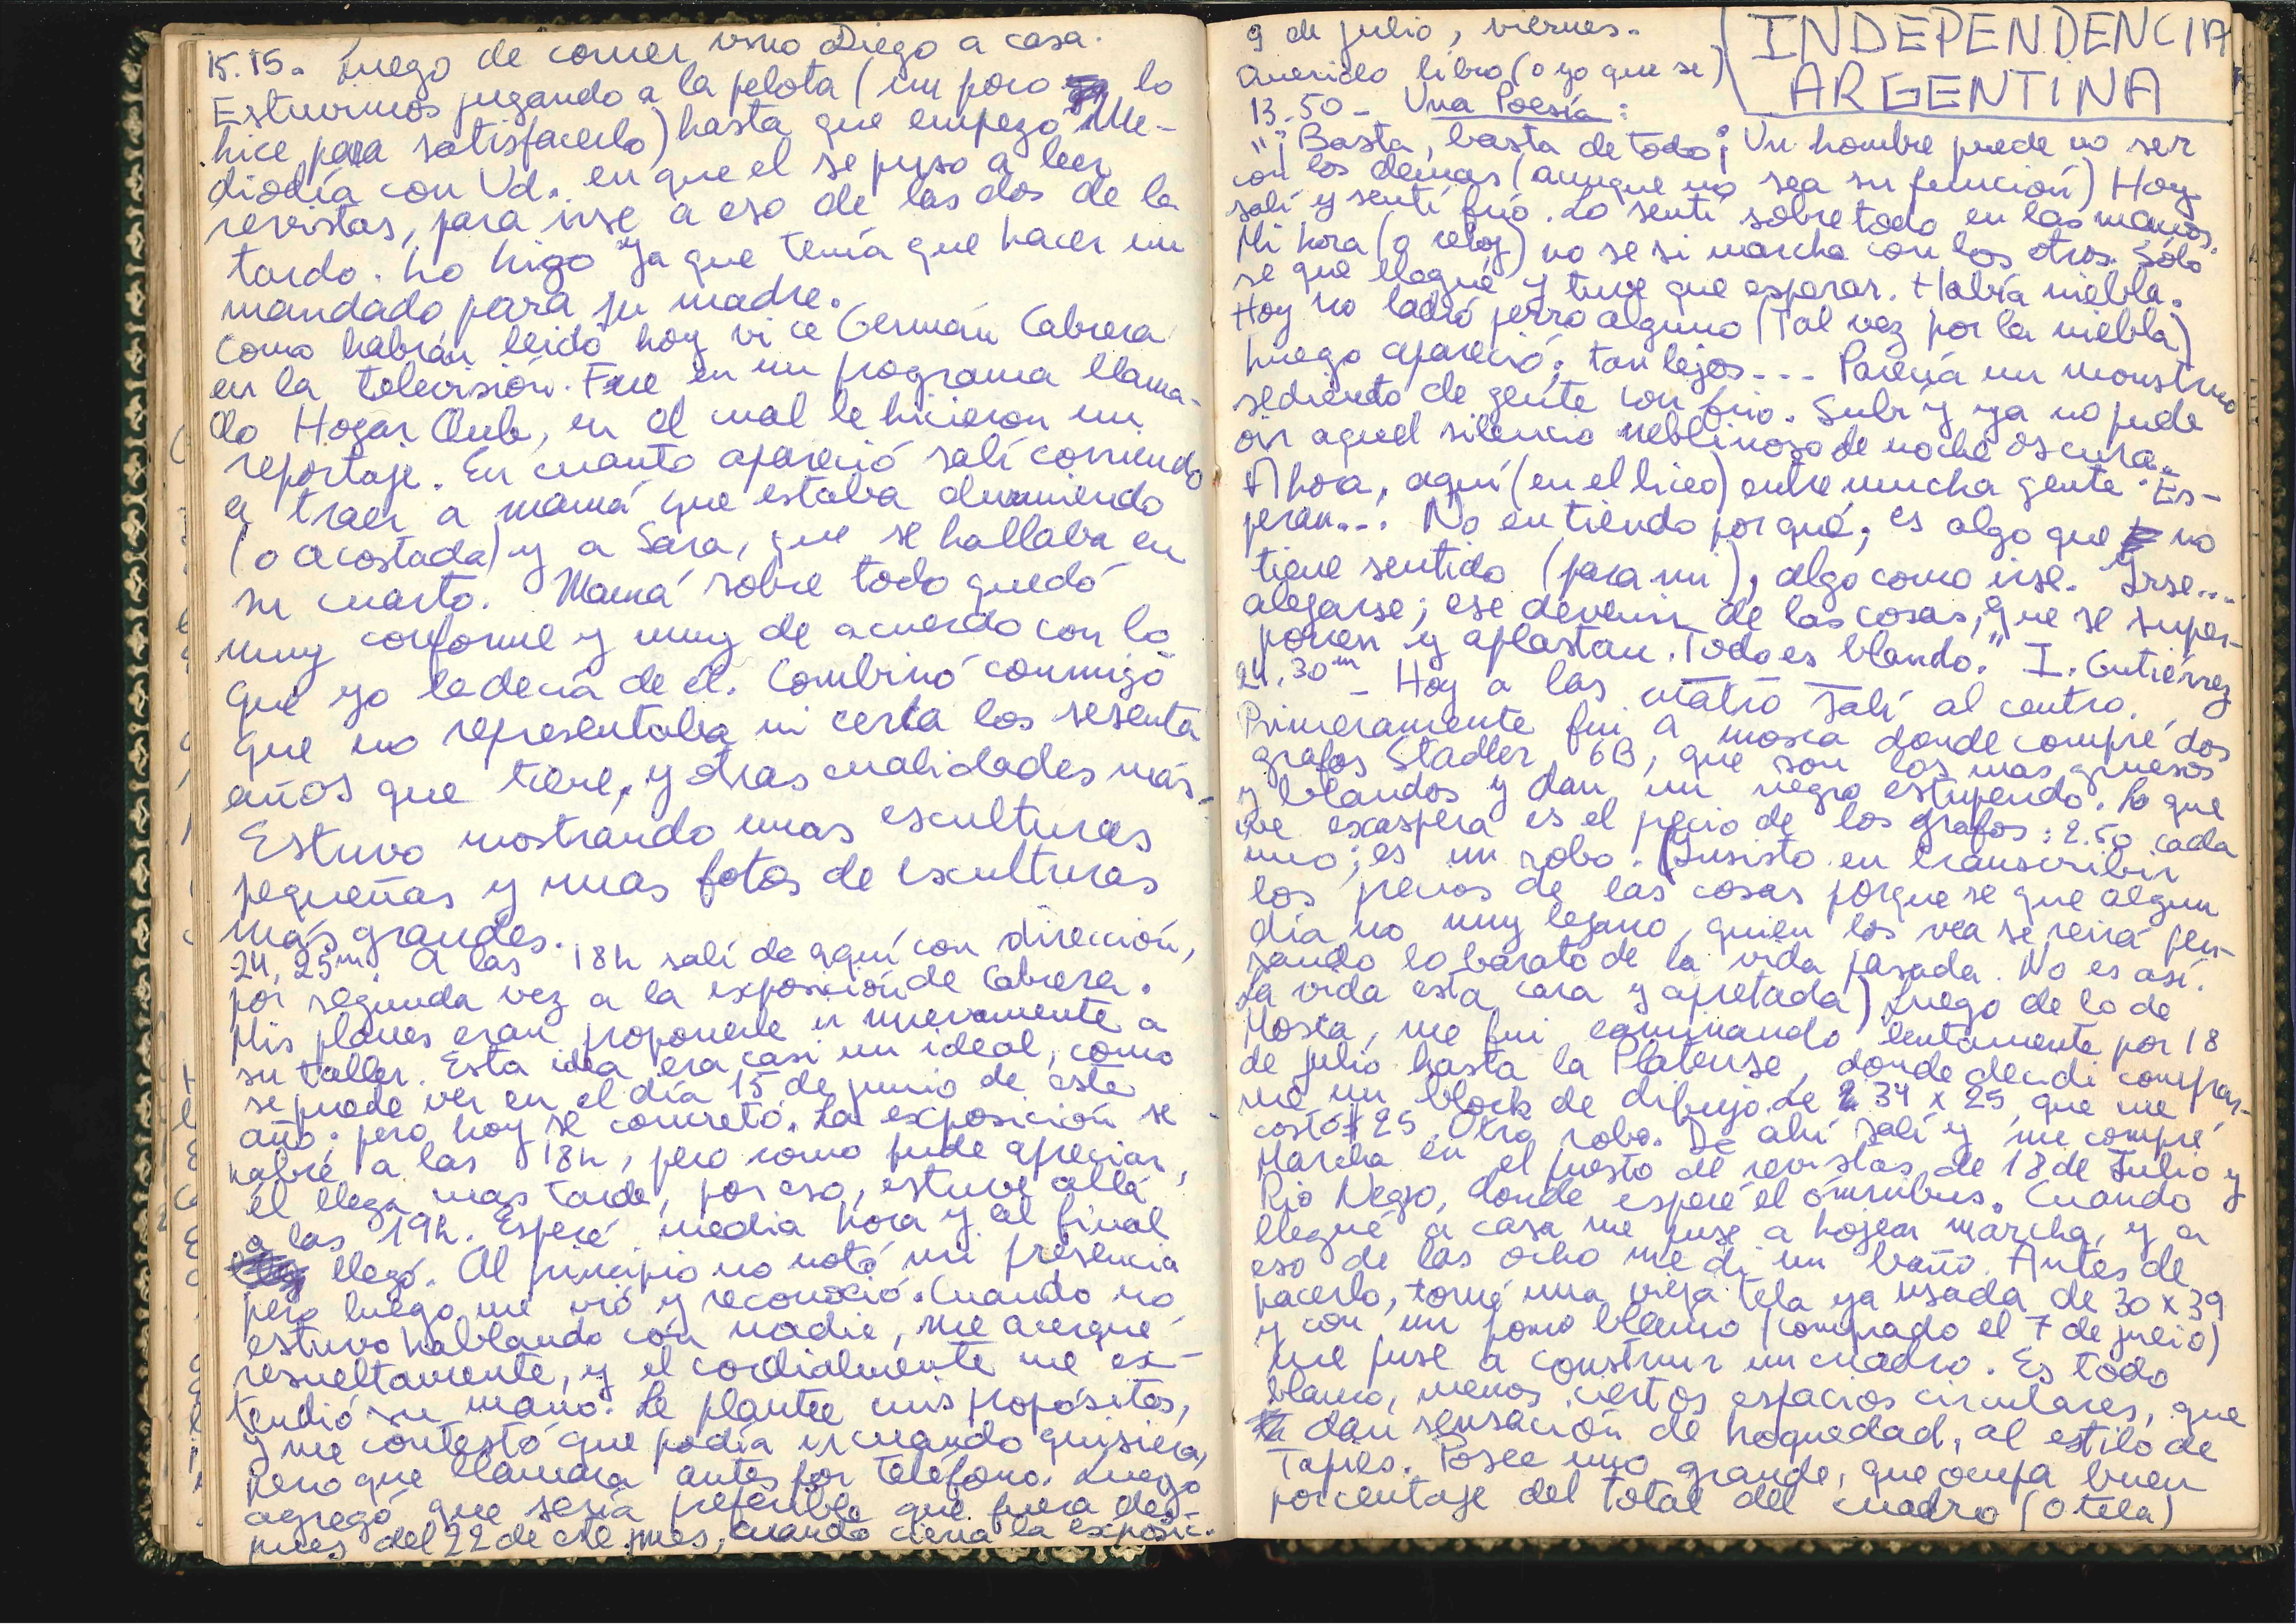 15.15. Luego de comer vino Diego a casa.
Estuvimos jugando a la pelota (un poco lo
hice para satisfacerlo) hasta que empezó "Me-
diodía con Vd." en que el se puso a leer
revistas, para irse a eso de las dos de la
tarde. Lo hizo ya que tenía que hacer un
mandado para su madre.
Como habrán leido hoy vi a Germán Cabrera
en la televisión. Fue en un programa llama-
do Hogar Club, en el cual le hicieron un
reportaje. En cuanto apareció salí corriendo
a traer a mamá que estaba durmiendo
(o acostada) y a Sara, que se hallaba en
su cuarto. Mamá sobre todo quedó
muy conforme y muy de acuerdo con lo
que yo le decía de él. Combinó conmigo
que no representaba ni cerca los sesenta
años que tiene, y otras cualidades más.
Estuvo mostrando unas esculturas
pequeñas y unas fotos de esculturas
más grandes.
24,25m. A las 18h salí de aquí con dirección,
por segunda vez a la exposición de Cabrera.
Mis planes eran proponerle ir nuevamente a
su taller. Esta idea era casi un ideal, como
se puede ver en el día 15 de junio de este
año. pero hoy se concretó. La exposición se
habre a las 18h, pero como pude apreciar,
él llega mas tarde, por eso, estuve allá
a las 19h. Esperé media hora y al final
llegó. Al principio no notó mi presencia
pero luego me vió y reconoció. Cuando no
estuvo hablando con nadie, me acerqué
resueltamente, y el cordialmente me ex-
tendió su mano. Le plantee mis propósitos,
y me contestó que podía ir cuando quisiera,
pero que llamara antes por teléfono. Luego
agregó que sería preferible que fuera des-
pues del 22 de este mes, cuando cierra la exposic.
9 de julio, viernes.
INDEPENDENCIA
ARGENTINA
Querido libro (o yo que se)
13.50 - Una Poesía:
"¡Basta, basta de todo¡ Un hombre puede no ser
con los demas (aunque no sea su función) Hoy
salí y sentí frió. Lo sentí sobre todo en las manos.
Mi hora (o reloj) no se si marcha con los otros. Sólo
se que llegué y tuve que esperar. Había niebla.
Hoy no ladró perro alguno (Tal vez por la niebla)
Luego apareció; tan lejos... Parecía un monstruo
sediento de gente con frio. Subí y ya no pude
oir aquel silencio neblinoso de noche oscura..
Ahora, aquí (en el liceo) entre mucha gente. Es-
peran... No entiendo por qué; es algo que no
tiene sentido (para mi), algo como irse. Irse...
alejarse; ese devenir de las cosas, que se super-
ponen y aplastan. Todo es blando." I. Gutiérrez
24.30m - Hoy a las cuatro salí al centro.
Primeramente fui a mosca donde compré dos
grafos Stadler 6B, que son los mas gruesos
y blandos y dan un negro estupendo. Lo que
me exaspera es el precio de los grafos: 2.50 cada
uno; es un robo. (Insisto en transcribir
los precios de las cosas porque se que algun
día no muy lejano, quien los vea se reirá pen-
sando lo barato de la vida pasada. No es así.
La vida esta cara y apretada) Luego de lo de
Mosca, me fui caminando lentamente por 18
de julio hasta la Platense, donde decidi comprar-
me un block de dibujo de 34 x 25 que me
costó $25. Otro robo. De ahí salí y me compré
Marcha en el puesto de revistas de 18 de Julio y
Rio Negro, donde esperé el ómnibus. Cuando
llegué a casa me puse a hojear marcha, y a
eso de las ocho me di un baño. Antes de
hacerlo, tomé una vieja tela ya usada de 30 x 39
y con un pomo blanco (comprado el 7 de julio)
me puse a construir un cuadro. Es todo
blanco, menos ciertos espacios circulares, que
dan sensación de hoquedad, al estilo de
Tapies. Posee uno grande, que ocupa buen
porcentaje del total del cuadro (o tela)